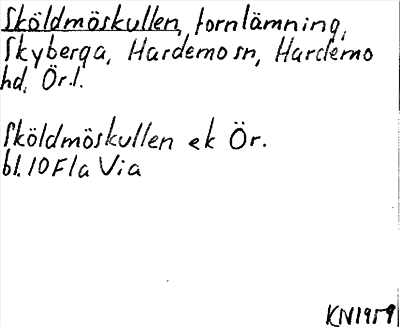 Sköldmöskullen, fornlämning,
Skyberga, Hardemo sn, Hardemo
hd, Ör.l.
Sköldmöskullen ek Ör.
bl. 10 F1a Via
KN1959